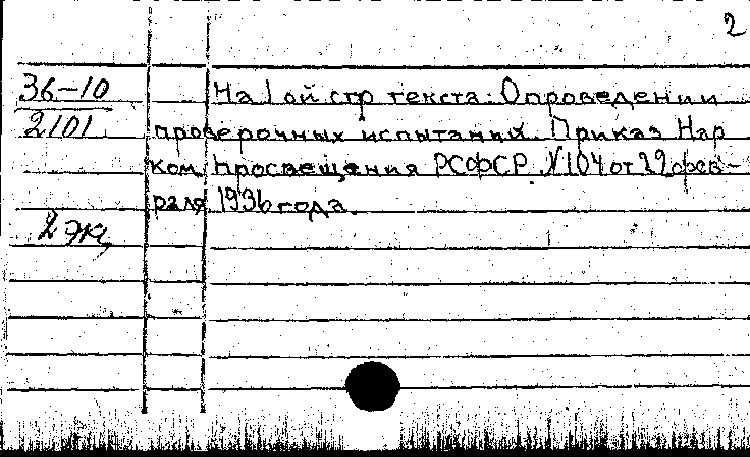 2
36-10 На 1 ой стр текста: О проведении
2101 проверочных испытаний. Приказ Нар
ком Просвещения РСФСР. №104 от 29 фев-
раля 1936 года.
2 экз